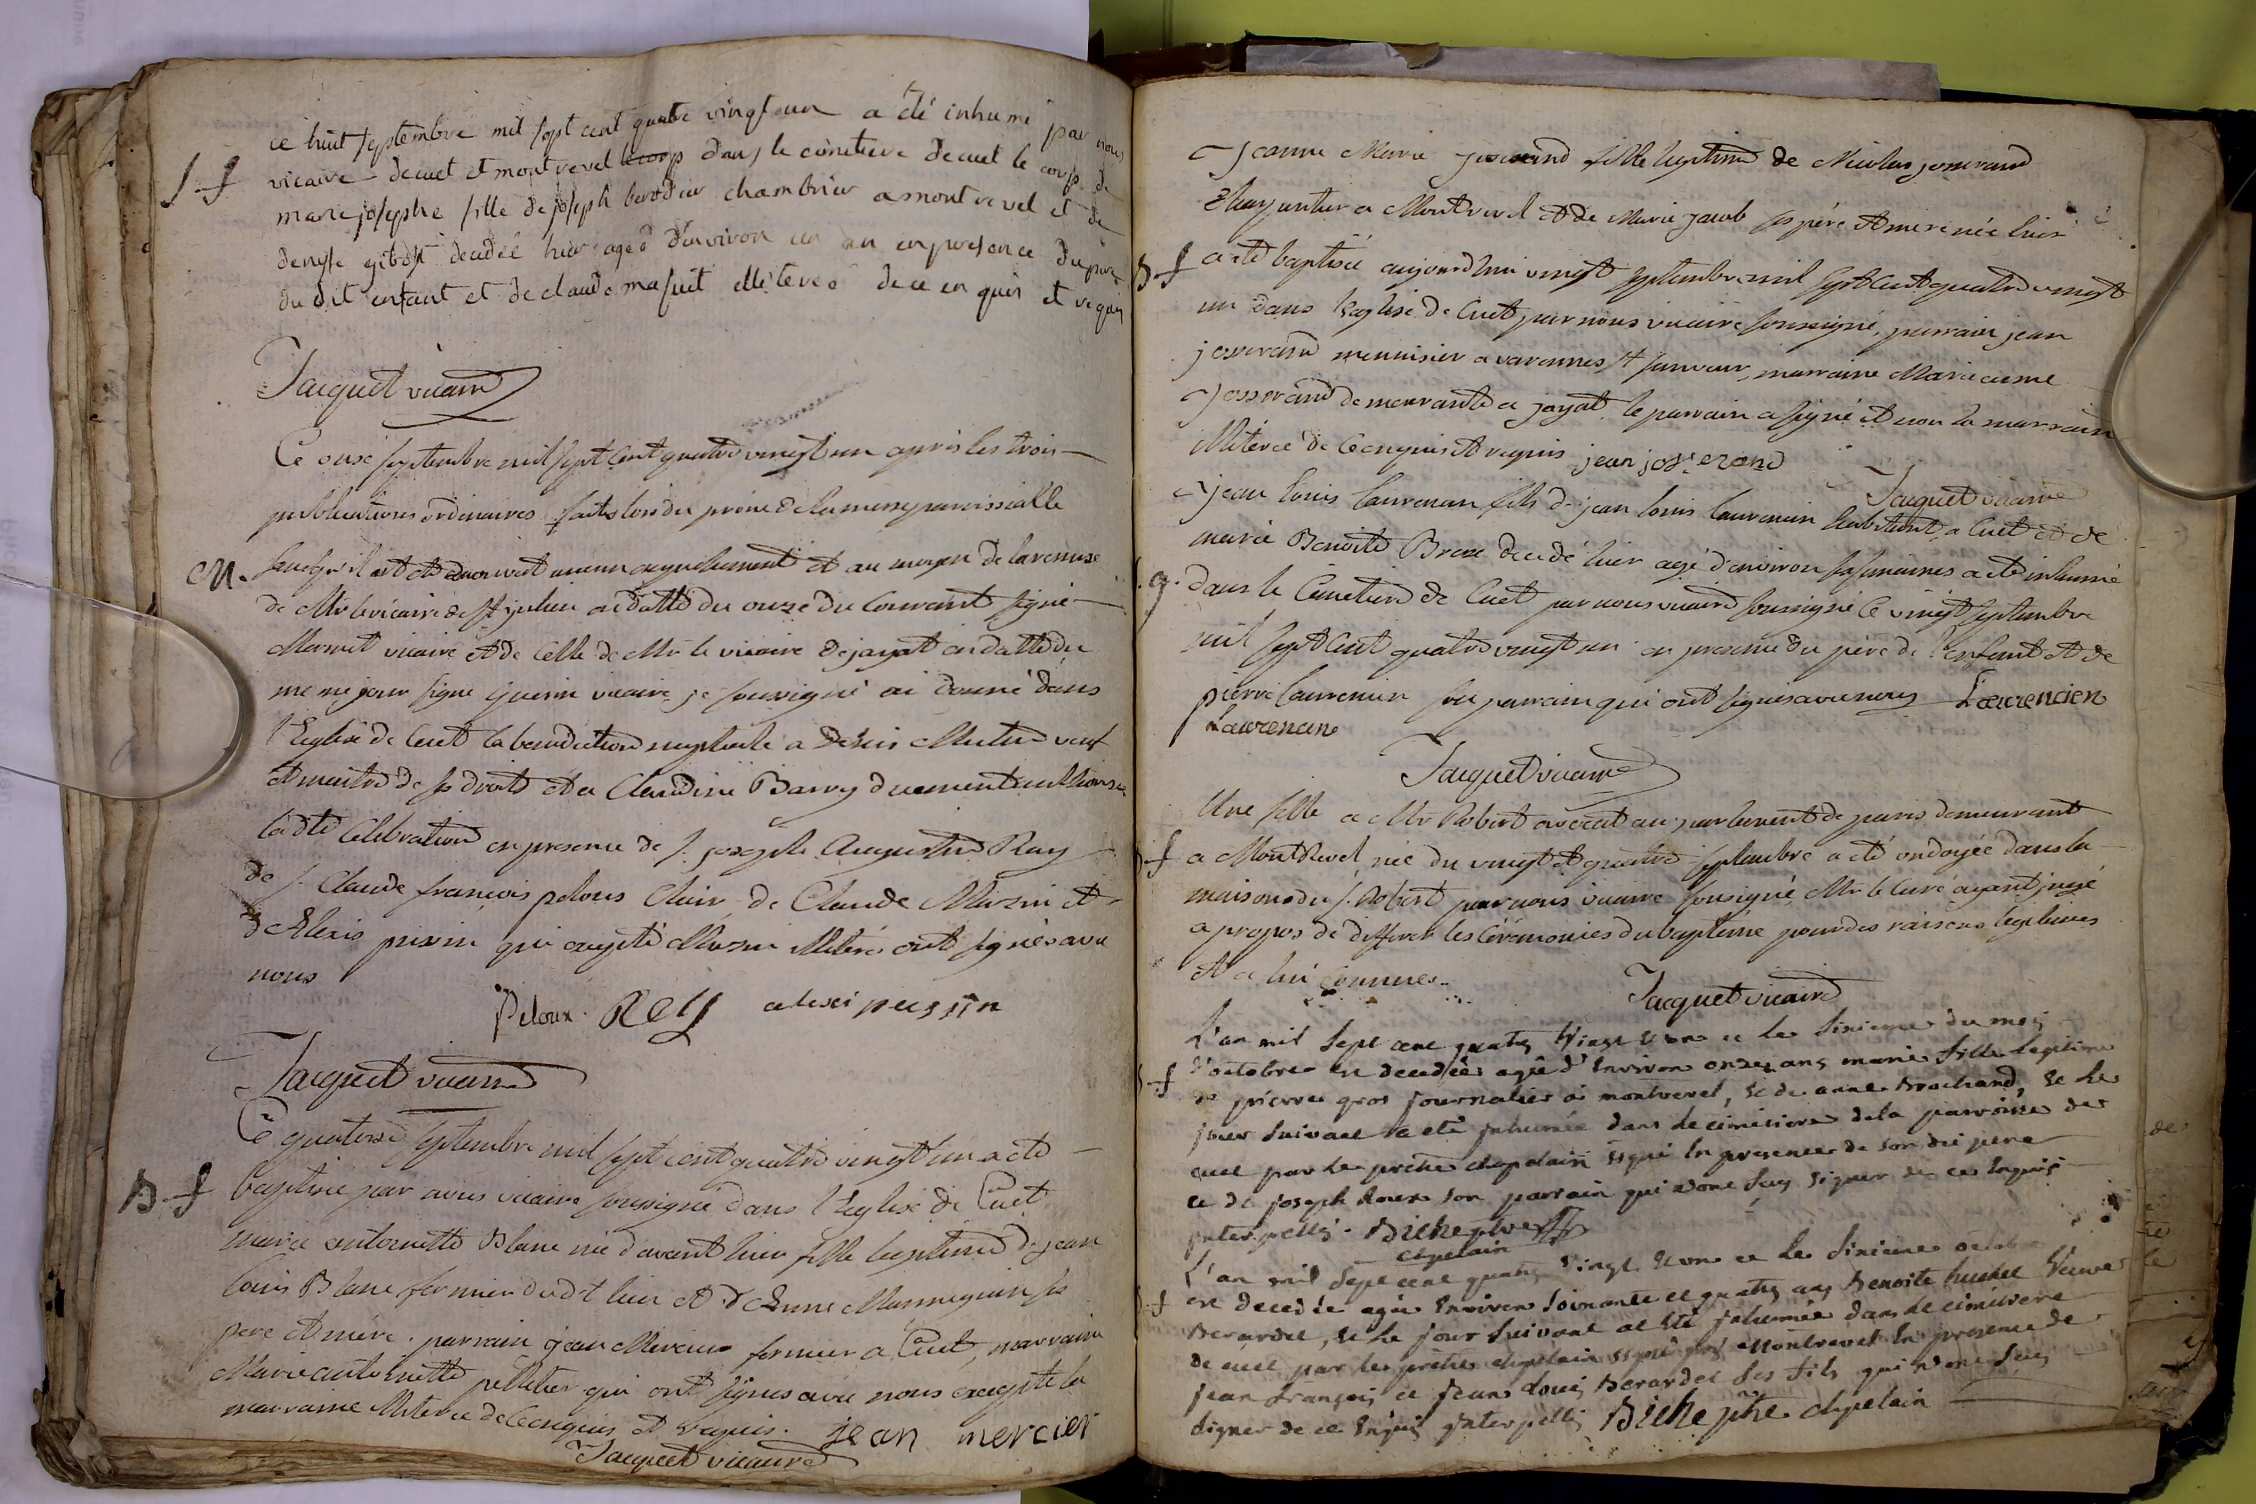 ce huit septembre mil sept cent quatre vingt un a été inhumé par nous
S. f
vicaire de cuet et montrevel le corps dans le cimetiere de cuet le corps de
marie josephe fille de joseph berodier chambrier a montrevel et de
denyse decedée hier agée d'environ un an en presence du pere
du dit enfant et de claude illiterés de ce enquis et requis
Jacquet vicaire
Ce onse septembre mil sept cent quatre vingt un apres les trois
publications ordinaires faites lors du prône de la messe paroissialle
M.
sans qu'il ait été aucun empechement et au moyen de la remise
de Mr le vicaire de St julien en datte du onze du Courant signé
Mermet vicaire et de celle de Mr le vicaire de jayat en datte du
meme jour signe Guerin vicaire, je soussigné ai donné dans
l'Eglise de Cuet la benediction nuptiale a Denis veuf
et maitre de ses droits et a Claudine Barry duement
ladte Celebration en presence de s. joseph Augustin Ray
de s. Claude françois pelous Clair, de Claude Mazuir et
d'Alexis pussin qui excepté Mazuir illiteré ont signés avec
nous
Peloux. REY alexi pussin
Jacquet vicaire
Ce quatorse septembre mil sept cent quatre vingt un a été
B. f
baptisé par nous vicaire soussigné dans l'Eglise de Cuet
marie antoinette Blanc née d'avant hier fille legitime de jean
louis Blanc fermier dudt lieu et d'Anne Mannequin ses
pere et mere. parrain jean Mercier fermier a Cuet, marraine
Marie antoinette pelletier qui ont signés avec nous excepté la
marraine illiterée de ce enquis et requis. jean mercier
Jacquet vicaire
Jeanne Marie josserand fille legitime de Nicolas josserand
Charpentier a Montrevel et de Marie jacob ses père et mere née hier
B. f
a été baptisée aujourdhui vingt septembre mil sept cent quatre vingt
un dans l'Eglise de Cuet par nous vicaire soussigné, parrain jean
josserand menuisier a varennes st sauveur, marraine Marie aimé
Josserand demeurante a jayat le parrain a signé et non la marraine
illiterée de ce enquis et requis jean josserand
Jacquet vicaire
jean louis laurencin fils de jean louis laurencin habitant a Cuet et de
marie Benoite Brox decedé hier agé d'environ six semaines a été inhumé
S. g.
dans le Cimetiere de Cuet par nous vicaire soussigné ce vingt septembre
mil sept cent quatre vingt un en presence du père de l'enfant et de
pierre laurencin son parrain qui ont signés avec nous Laurencien
Laurencin
Jacquet vicaire
Une fille a Mr Robert avocat au parlement de paris demeurant
B. f
a Montrevel, née du vingt et quatre septembre a été ondoyée dans la
maison du s. Robert par nous vicaire soussigné, Mr le Curé ayant jugé
a propos de differer les Cérémonies du baptême pour des raisons legitimes
et a lui Connues.
Jacquet vicaire
L'an mil Sept cent quatre Vingt Et un et le Sixieme du mois
S. f
d'octobre est decedée agée d'Environ onze ans marie fille legitime
de pierre gros journalier a montrevel, Et de anne Brochand, Et le
jour Suivant a eté jnhumée dans le cimetiere de la parroisse de
cuet par le prêtre chapelain signé En presence de son dit pere
et de joseph roux son parrain qui n'ont Scu signer de ce Enquis
jnterpellés. Biche ptre
chapelain
L'an mil Sept cent quatre Vingt Et un et le Sixieme octobre
S. f
est decedée agée Environ Soixante et quatre ans Benoite Veuve
Berardet, Et le jour Suivant at Eté jnhumée dans le cimetiere
de cuet par le prêtre chapelain signé Montrevel En presence de
jean françois et jean Louis Berardet Ses fils qui n'ont Scu
signer de ce Enquis jnterpellés Biche ptre chapelain